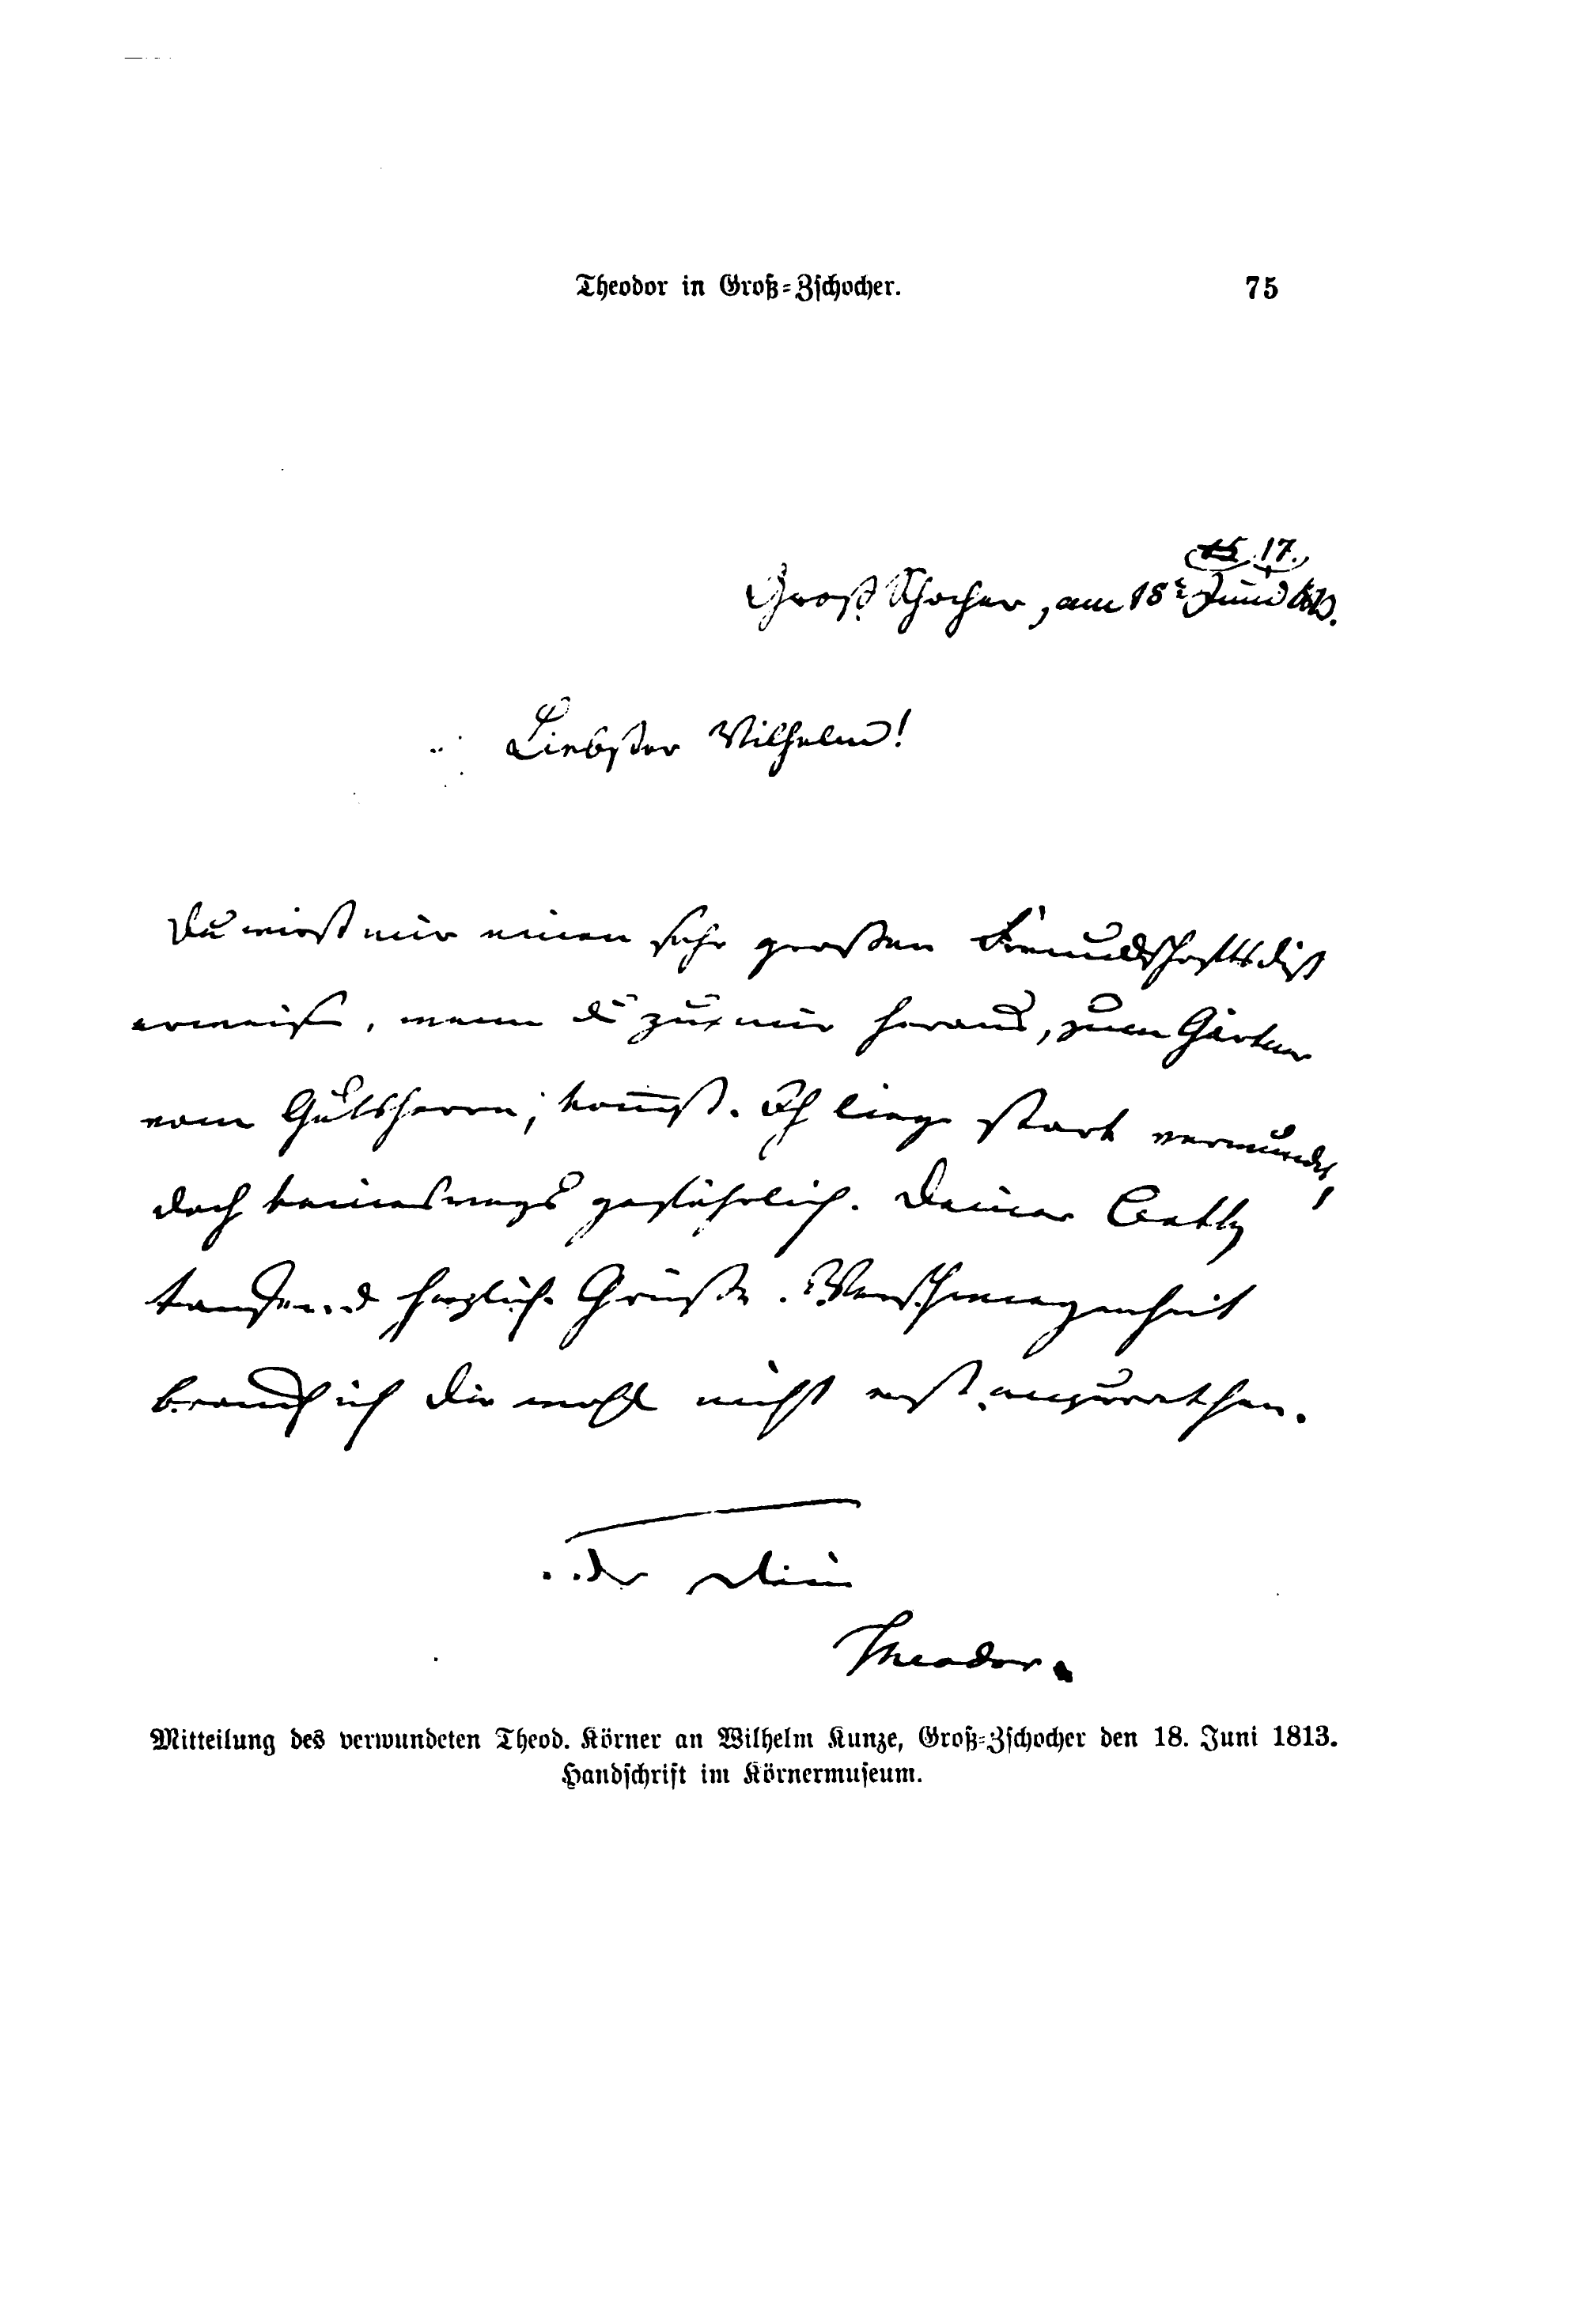 Theodor in Groß-Zschocher. 75
15 17.
Groß Zschocher, am 18t Juni 1813.
Liebster Wilhelm!
Du wirst mir einen sehr großen
erweisen, wenn du zu mir heraus, zum Gärtner
vom Gutsherrn, kommst. Ich liege stark verwundet,
doch keineswegs gefährlich. Deiner
tausend herzliche Grüße. Verschwiegenheit
brauch ich dir wohl nicht erst anzurathen.
Dein
Theodor.
Mitteilung des verwundeten Theod. Körner an Wilhelm Kunze, Groß-Zschocher den 18. Juni 1813.
Handschrift im Körnermuseum.